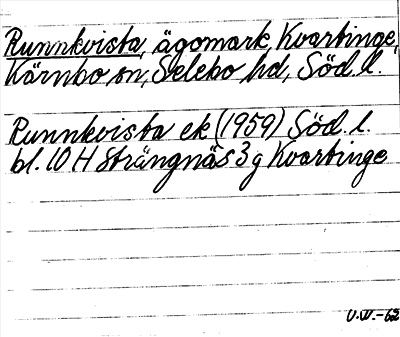 Runnkvista, ägomark, Kvartinge,
Kärnbo sn, Selebo hd, Söd. l.
Runnkvista ek (1959) Söd. l.
bl. 10 H Strängnäs 3 g Kvartinge